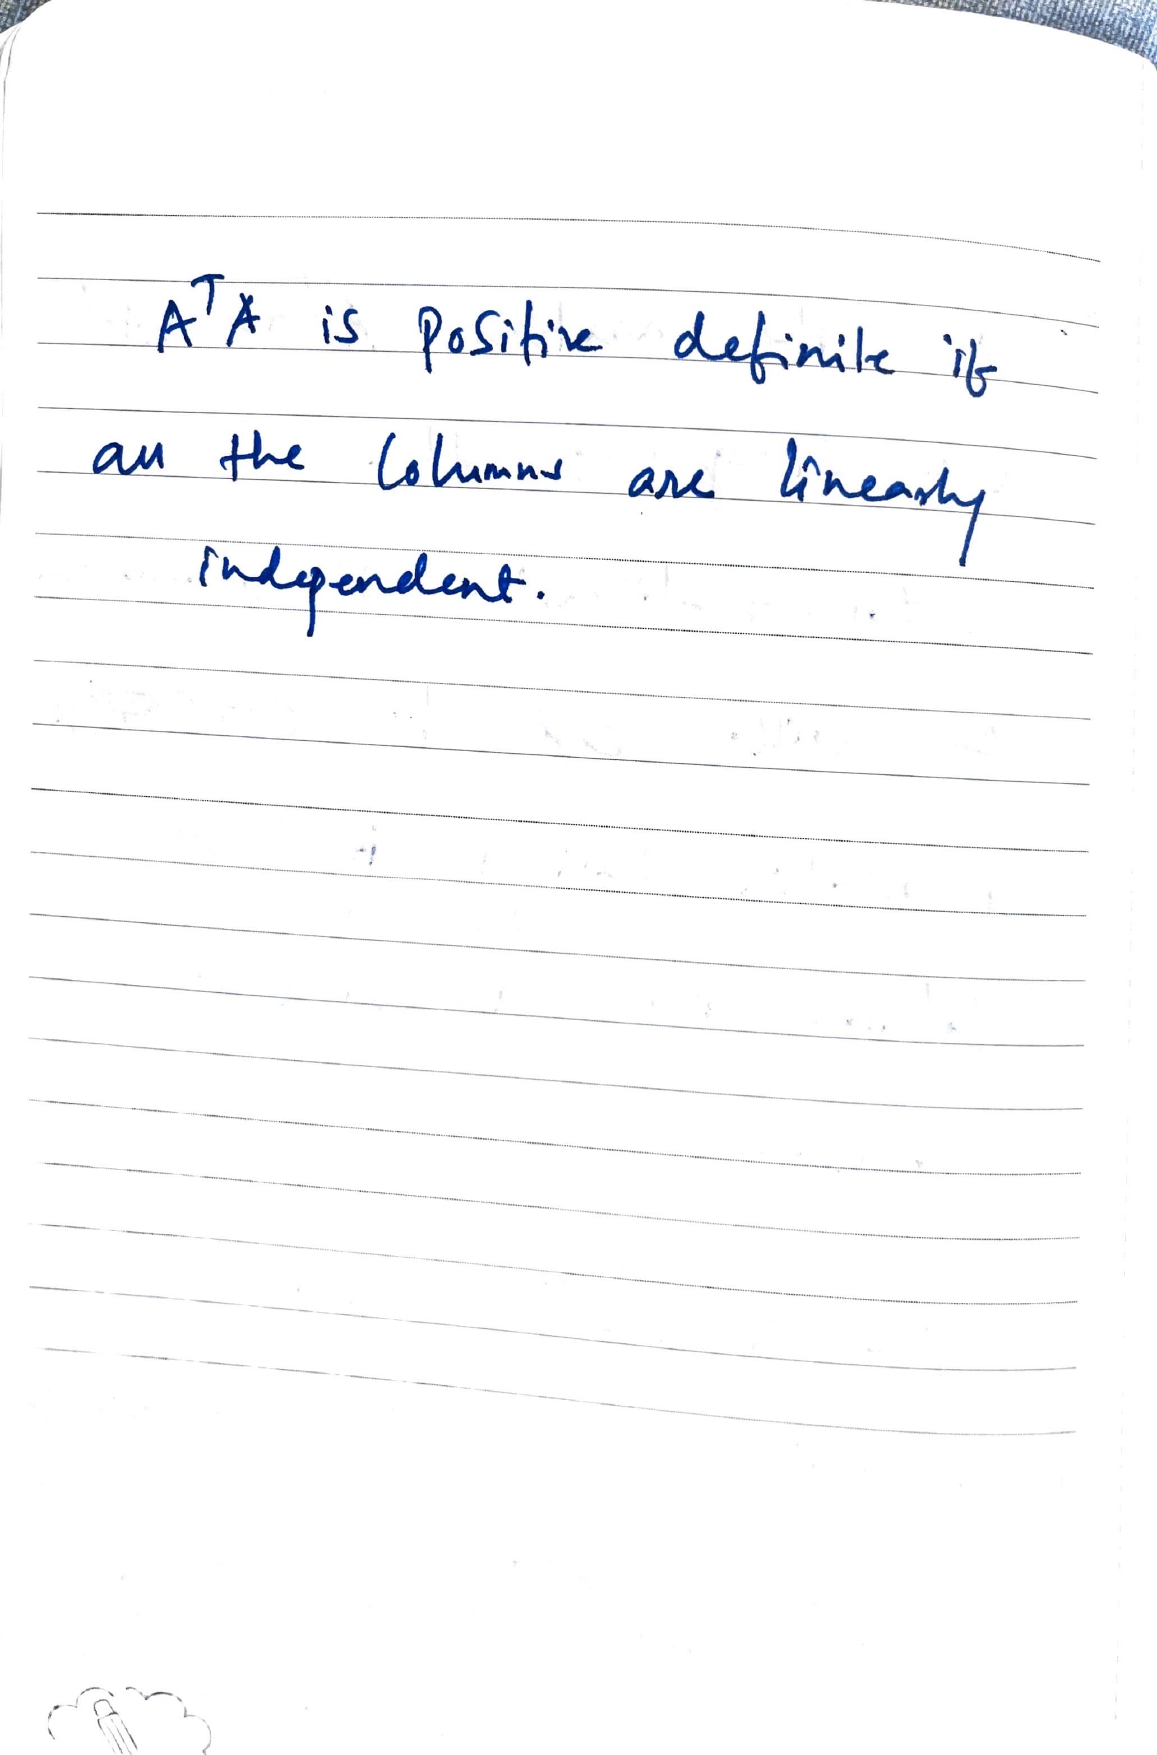 AᵀA is positive definite if
all the columns are linearly
independent.